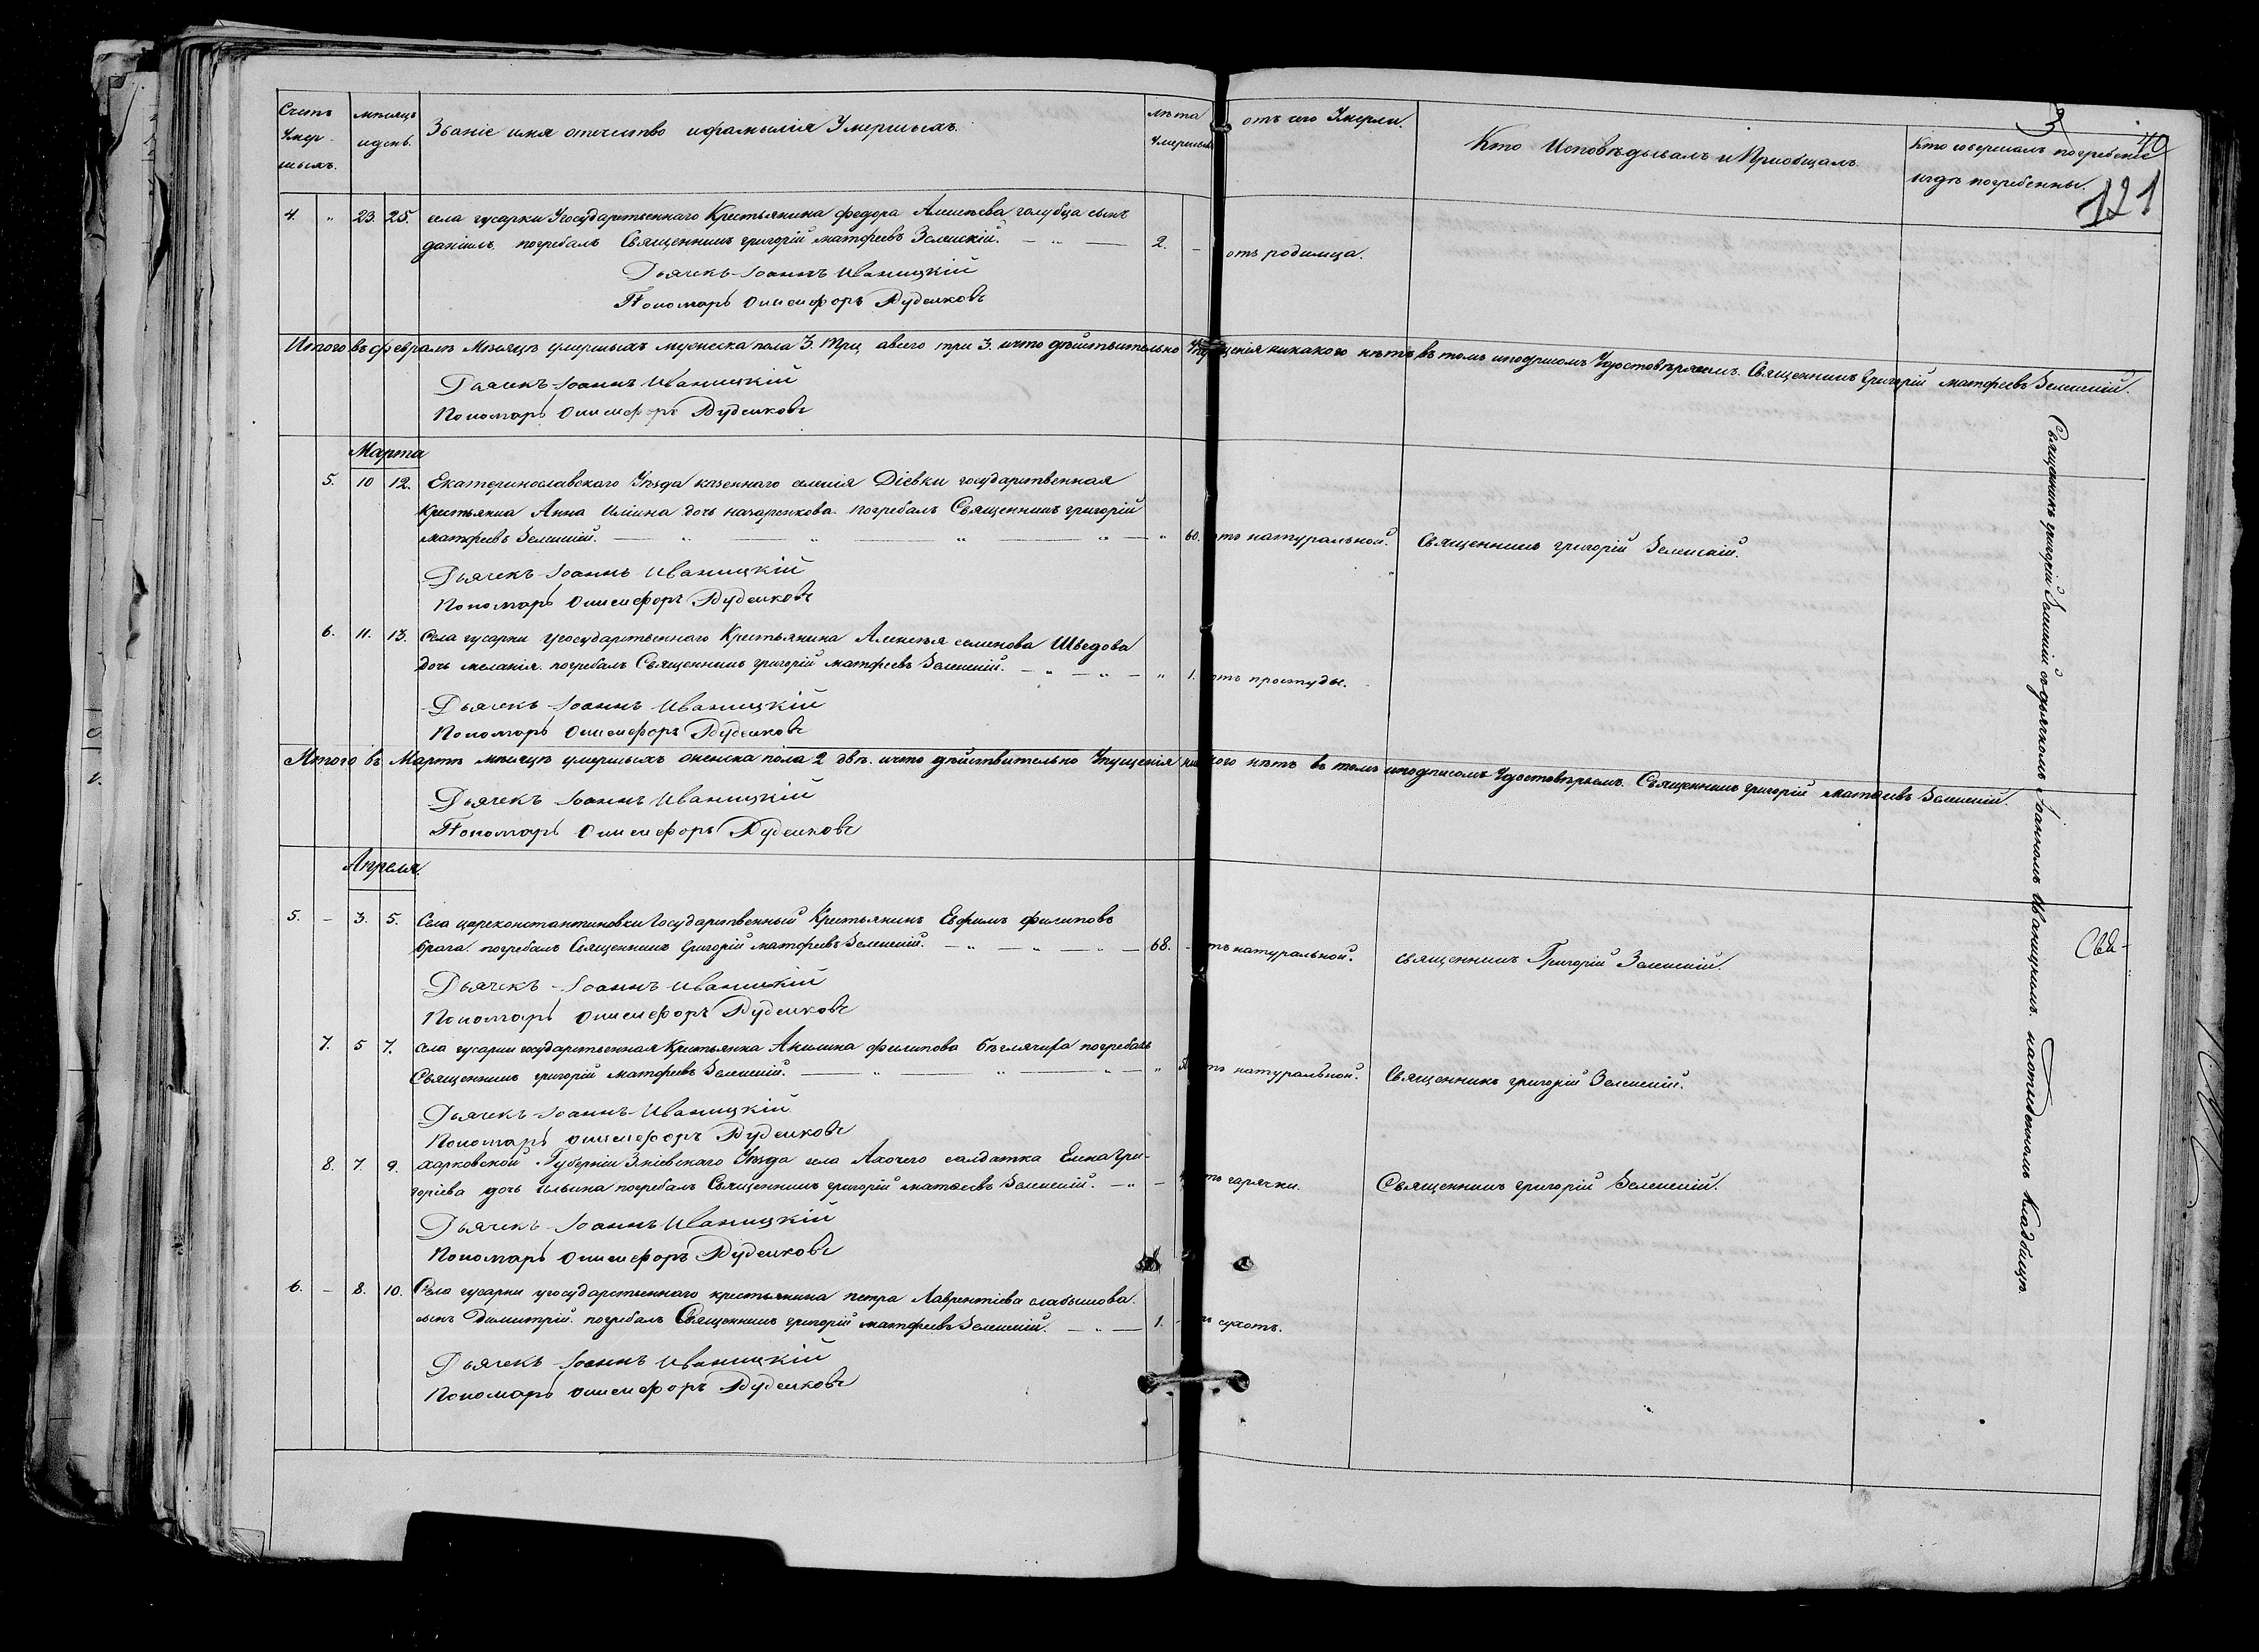 Счетъ Умер-шыхъ.
мѣсяцъ и день.
Званіе имя отечество и фамылія Умершыхъ.
лѣта Умершыхъ
отъ чего Умерли.
Кто Исповѣдывалъ и Приобщалъ.
Кто совершалъ погребеніе и гдѣ погребенны.
3
40
121
4. " 23. 25. села гусарки Угосударственнаго Крестьянина федора Алексѣева голубца сынъ
даніилъ погребалъ Священникъ григорій матфеевъ Зеленскій. — " — 2. — отъ родимца.
Дьячекъ Іоаннъ Иваницкій
Пономарь Онисифоръ Дуденковъ
Итого въ февралѣ Мѣсяцѣ умершыхъ мужеска пола 3. три, а всего три 3. и что дѣйствительно Упущенія никакого нѣтъ въ томъ и подписомъ Удостовѣряемъ. Священникъ Григорій матфеевъ Зеленскій.
Дьячекъ Іоаннъ Иваницкій
Пономарь Онисифоръ Дуденковъ
Марта
5. 10 12. Екатеринославского Уѣзда казеннаго селенія Діевки государственная
Крестьянка Анна Иліина дочь назаренкова. погребалъ Священникъ григорій
матфеевъ Зеленскій. — " — " — " — " — " 60. отъ натуральной. Священникъ григорій Зеленскій.
Дьячекъ Іоаннъ Иваницкій
Пономарь Онисифоръ Дуденковъ
6. 11. 13. Села гусарки Угосударственнаго Крестьянина Алексѣя семенова Шведова
дочь меланія. погребалъ Священникъ григорій матфеевъ Зеленскій. — " — " — " 1. отъ простуды.
Дьячекъ Іоаннъ Иваницкій
Пономарь Онисифоръ Дуденковъ
Итого въ Мартѣ мѣсяцѣ умершыхъ женска пола 2 двѣ. и что дѣйствительно Упущенія никакого нѣтъ въ томъ и подписомъ Удостовѣряемъ. Священникъ григорій матфеевъ Зеленскій.
Дьячекъ Іоаннъ Иваницкій
Пономарь Онисифоръ Дуденковъ
Апреля.
5. — 3. 5. Села цареконстантиновки Государственный Крестьянинъ Евфимъ филиповъ
брага. погребалъ Священникъ Григорій матфеевъ Зеленскій. — " — " — " — 68. — отъ натуральной. священникъ Григорій Зеленскій.
Дьячекъ Іоаннъ Иваницкій
Пономарь Онисифоръ Дуденковъ
7. 5 7. села гусарки государственная Крестьянка Акилина филипова погребалъ
Священникъ григорій матфеевъ Зеленскій. — " — " — " — " отъ натуральной. Священникъ григорій Зеленскій.
Дьячекъ Іоаннъ Иваницкій
Пономарь Онисифоръ Дуденковъ
8. 7. 9. харковской Губерніи Зміевскаго Уѣзда села солдатка Елена Гри-
горіева дочь ильина погребалъ Священникъ григорій матфеевъ Зеленскій. — " — отъ гарячки. Священникъ григорій Зеленскій.
Дьячекъ Іоаннъ Иваницкій
Пономарь Онисифоръ Дуденковъ
6. — 8. 10. Села гусарки угосударственнаго крестьянина петра Лаврентіева
сынъ Димитрій. погребалъ Священникъ григорій матфеевъ Зеленскій. — " — 1. — отъ сухотъ.
Дьячекъ Іоаннъ Иваницкій
Пономарь Онисифоръ Дуденковъ
Священникъ григорій Зеленскій съ дьячкомъ Іоанномъ Иваницкимъ. на отведенномъ Кладбищѣ.
Свя-